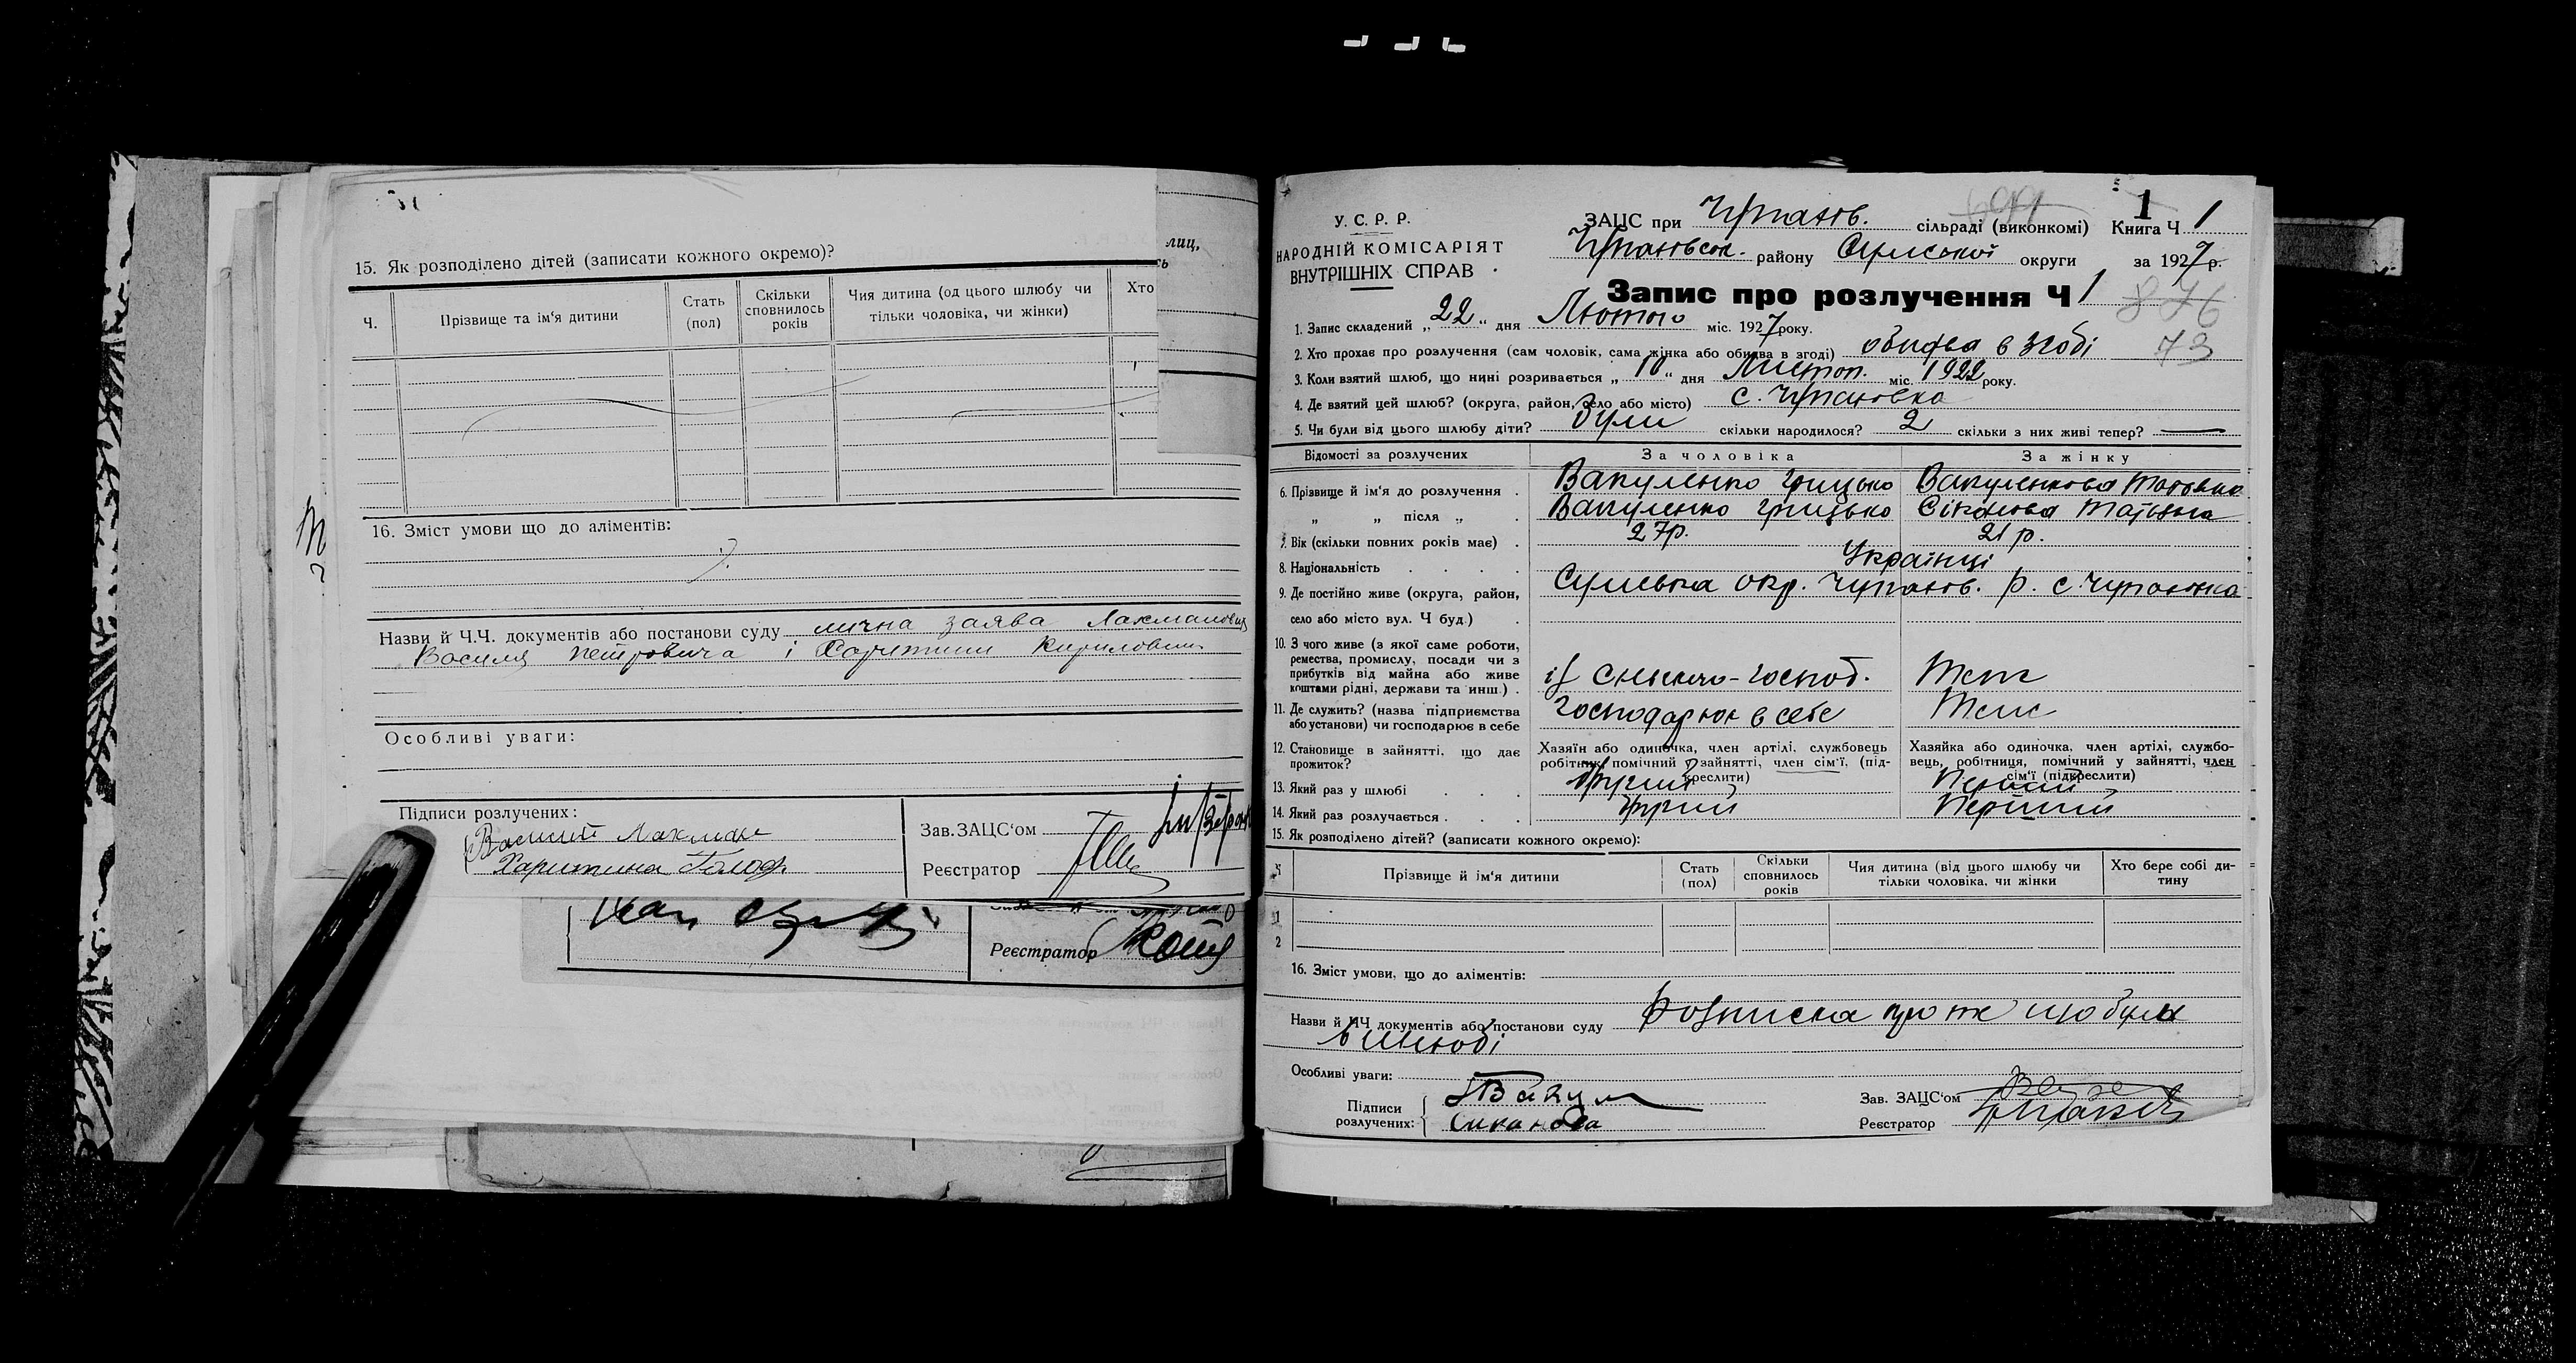 15. Як розподілено дітей (записати кожного окремо)?
лиц,
Ч. Прізвище та ім'я дитини Стать (пол) Скільки сповнилось років Чия дитина (од цього шлюбу чи тільки чоловіка, чи жінки) Хто
16. Зміст умови що до аліментів:
Назви й Ч.Ч. документів або постанови суду лична заява
Василя Петровича і Харитини Кириловни
Особливі уваги:
Підписи розлучених:
Василий
Харитина
Зав. ЗАЦС'ом
Реєстратор
Реєстратор
У. С. Р. Р.
НАРОДНІЙ КОМІСАРІЯТ
ВНУТРІШНІХ СПРАВ
ЗАЦС при Чупахів. сільраді (виконкомі) Книга Ч 1
1
Чупахівськ. району Сумської округи за 1927 р.
Запис про розлучення Ч 1
876
73
1. Запис складений „22“ дня Лютого міс. 1927 року.
2. Хто прохає про розлучення (сам чоловік, сама жінка або обидва в згоді) обидва в згоді
3. Коли взятий шлюб, що нині розривається „10“ дня Листоп. міс. 1922 року.
4. Де взятий цей шлюб? (округа, район, село або місто) с. Чупаховка
5. Чи були від цього шлюбу діти? Були скільки народилося? 2 скільки з них живі тепер? —
Відомості за розлучених За чоловіка За жінку
6. Прізвище й ім'я до розлучення . Вакуленко Грицько Вакуленкова Татьяна
„ „ після „ . Вакуленко Грицько Сіканова Татьяна
7. Вік (скільки повних років має) . 27р. 21 р.
8. Національність . . . . Українці
9. Де постійно живе (округа, район, село або місто вул. Ч буд.) . Сумська окр. Чупахів. р. с. Чупаховка
10. З чого живе (з якої саме роботи, ремества, промислу, посади чи з прибутків від майна або живе коштами рідні, держави та инш.) . із сильсько-господ. Теж
11. Де служить? (назва підприємства або установи) чи господарює в себе Господарює в себе Теж
12. Становище в зайнятті, що дає прожиток? Хазяїн або одиночка, член артілі, службовець робітник, помічний у зайнятті, член сім'ї, (підкреслити) Хазяйка або одиночка, член артілі, службовець, робітниця, помічний у зайнятті, член сім'ї (підкреслити)
13. Який раз у шлюбі . . . Другий Перший
14. Який раз розлучається . . . Другий Перший
15. Як розподілено дітей? (записати кожного окремо):
Ч Прізвище й ім'я дитини Стать (пол) Скільки сповнилось років Чия дитина (від цього шлюбу чи тільки чоловіка, чи жінки Хто бере собі дитину
1
2
16. Зміст умови, що до аліментів:
Назви й ЧЧ документів або постанови суду Розписка про те що були
в шлюбі
Особливі уваги:
Підписи розлучених: Вакул
Сиканова
Зав. ЗАЦС'ом
Реєстратор